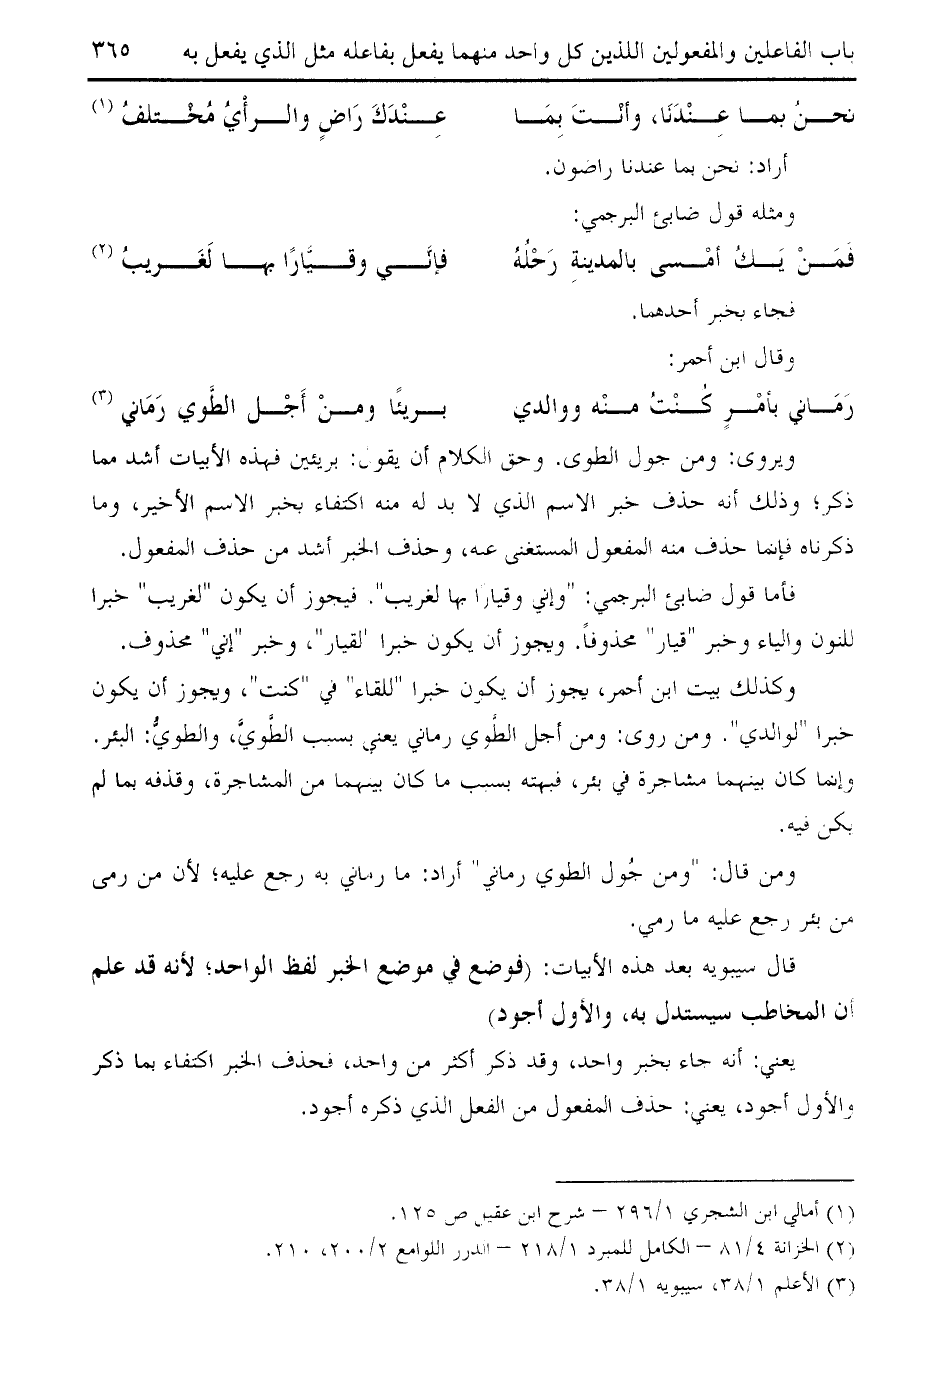 باب الفاعلين والمفعولين اللذين كل واحد منهما يفعل بفاعله مثل الذي يفعل به ٣٦٥
نحن بما عِنْدَنَا، وأنْتَ بِمَا عِنْدَكَ رَاضٍ والرأْيُ مُخْتلفُ (١)
أراد: نحن بما عندنا راضون.
ومثله قول ضابئ البرجمي:
فَمَنْ يَكُ أمْسى بالمدينةِ رَحْلُهُ فإنَّي وقيَّارًا بها لَغَريبُ (٢)
فجاء بخبر أحدهما.
وقال ابن أحمر:
رَمَاني بأمْرٍ كُنْتُ منْه ووالدي بريئًا ومنْ أَجْل الطَّوي رَمَاني (٣)
ويروى: ومن جول الطوى. وحق الكلام أن يقول: بريئين فهذه الأبيات أشد مما
ذكر؛ وذلك أنه حذف خبر الاسم الذي لا بد له منه اكتفاء بخبر الاسم الأخير، وما
ذكرناه فإنما حذف منه المفعول المستغنى عنه، وحذف الخبر أشد من حذف المفعول.
فأما قول ضابئ البرجمي: "وإني وقيارًا بها لغريب". فيجوز أن يكون "لغريب" خبرا
للنون والياء وخبر "قيار" محذوفاً. ويجوز أن يكون خبرا "لقيار"، وخبر "إني" محذوف.
وكذلك بيت ابن أحمر، يجوز أن يكون خبرا "للقاء" في "كنت"، ويجوز أن يكون
خبرا "لوالدي". ومن روى: ومن أجل الطَّوي رماني يعني بسبب الطَّويَّ، والطويُّ: البئر.
وإنما كان بينهما مشاجرة في بئر، فبهته بسبب ما كان بينهما من المشاجرة، وقذفه بما لم
يكن فيه.
ومن قال: "ومن جُول الطوي رماني" أراد: ما رماني به رجع عليه؛ لأن من رمى
من بئر رجع عليه ما رمي.
قال سيبويه بعد هذه الأبيات: (فوضع في موضع الخبر لفظ الواحد؛ لأنه قد علم
أن المخاطب سيستدل به، والأول أجود)
يعني: أنه جاء بخبر واحد، وقد ذكر أكثر من واحد، فحذف الخبر اكتفاء بما ذكر
والأول أجود، يعني: حذف المفعول من الفعل الذي ذكره أجود.
(١) أمالي ابن الشجري ٢٩٦/١ – شرح ابن عقيل ص ١٢٥.
(٢) الخزانة ٨١/٤ – الكامل للمبرد ٢١٨/١ – الدرر اللوامع ٢٠٠/٢، ٢١٠.
(٣) الأعلم ٣٨/١، سيبويه ٣٨/١.